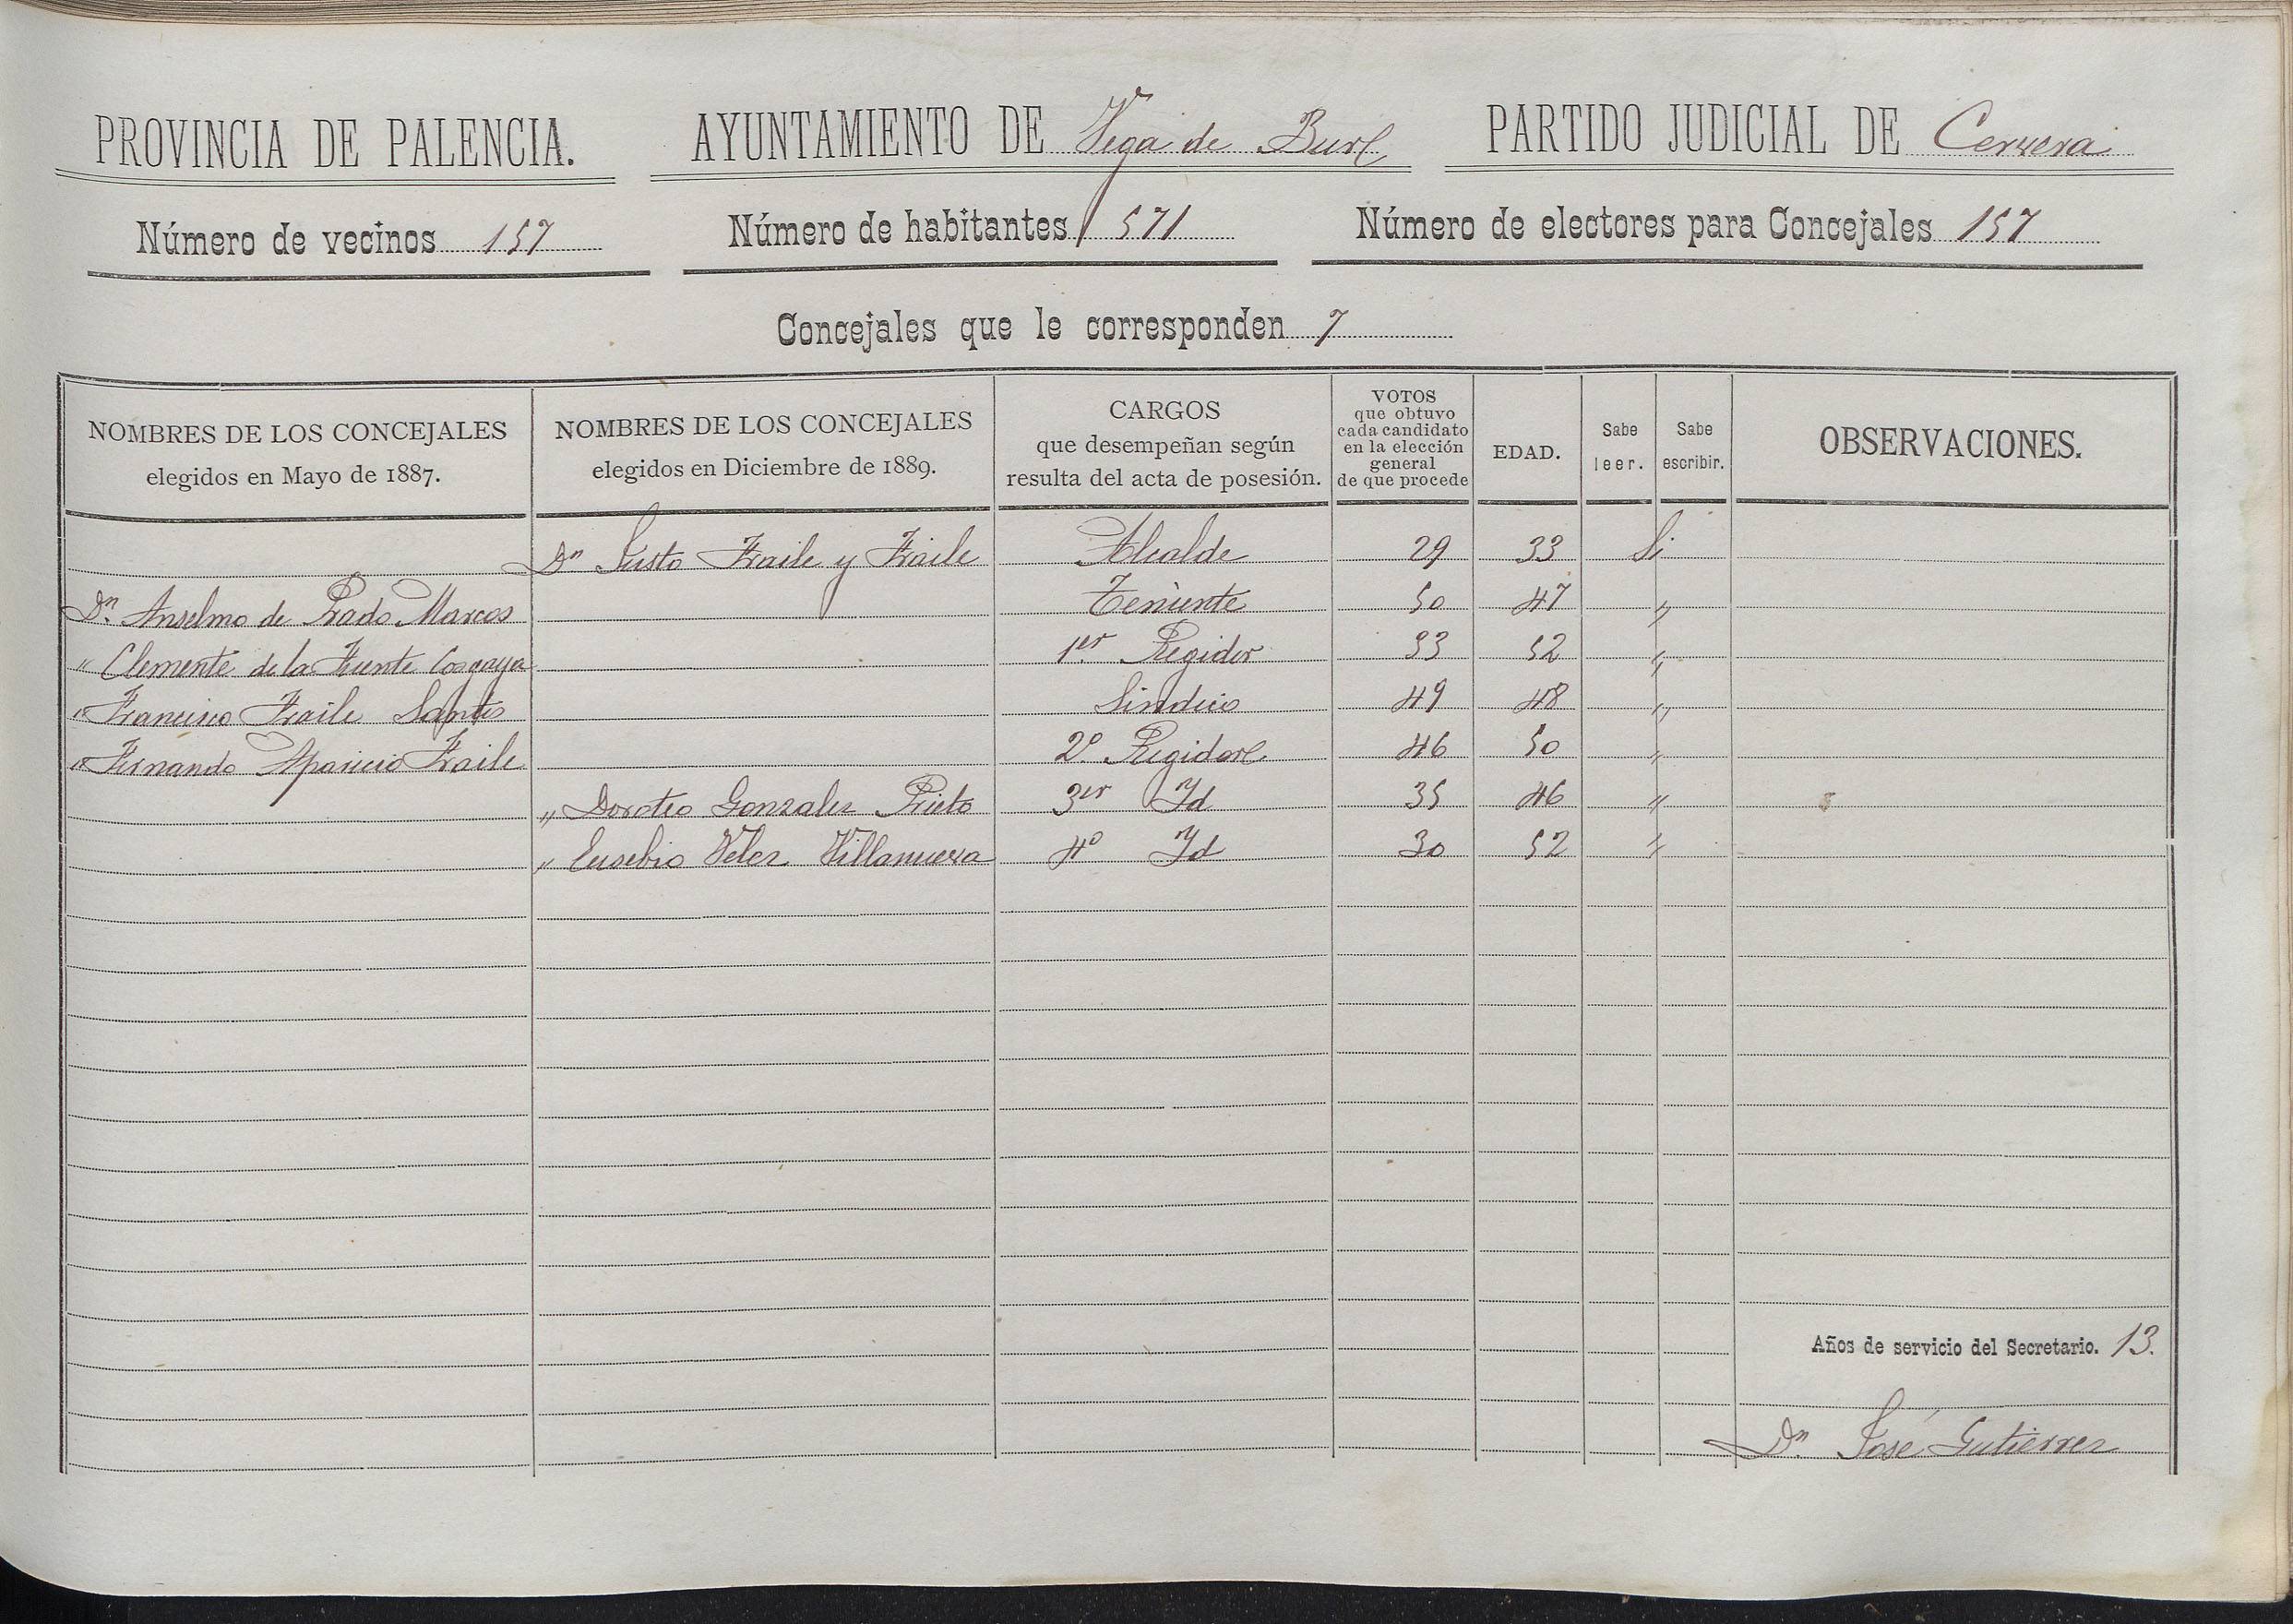 PROVINCIA DE PALENCIA. AYUNTAMIENTO DE Vega de Bur PARTIDO JUDICIAL DE Cervera
Número de vecinos 157 Número de habitantes 571 Número de electores para Concejales 157
Concejales que le corresponden 7
NOMBRES DE LOS CONCEJALES
elegidos en Mayo de 1887.
NOMBRES DE LOS CONCEJALES
elegidos en Diciembre de 1889.
CARGOS
que desempeñan según
resulta del acta de posesión.
VOTOS
que obtuvo
cada candidato
en la elección
general
de que procede
EDAD.
Sabe
leer.
Sabe
escribir.
OBSERVACIONES.
Dn Justo Fraile y Fraile Alcalde 29 33 Si
Dn. Anselmo de Prado Marcos Teniente 50 47 "
" Clemente de la Fuente Cosgaya 1er Regidor 33 52 "
" Francisco Fraile Santos Sindico 49 48 "
" Fernando Aparicio Fraile 2º Regidor 46 50 "
" Doroteo Gonzalez Prieto 3er Id 35 46 "
" Eusebio Velez Villanueva 4º Id 30 52 "
Años de servicio del Secretario. 13.
Dn. José Gutierrez